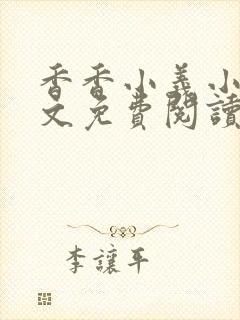 香香小義小
文免費閱讀
李讓平